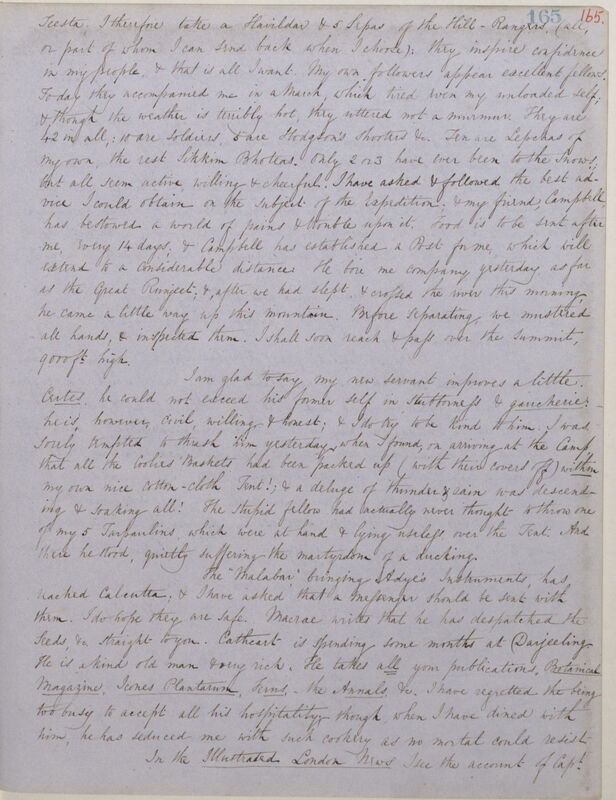 165 165.
Teesta. I therefore take a Havildar & 5 Sepas of the Hill-Rangers, (all,
or part of whom I can send back when I choose); they inspire confidence
in my people, & that is all I want. My own followers appear excellent fellows.
Today they accompanied me in a March, which tired even my unloaded self;
& though the weather is terribly hot, they uttered not a murmur. They are
42 in all,: 10 are soldiers, 5 are Hodgson's shooters &c. Ten are Lepchas of
my own, the rest Sikkim Bhoteas. Only 2 or 3 have ever been to the Snows,
but all seem active willing & cheerful. I have asked & followed the best ad-
vice I could obtain on the subject of the Expedition. & my friend Campbell
has bestowed a world of pains & trouble upon it. Food is to be sent after
me, every 14 days, & Campbell has established a Post for me, which will
extend to a considerable distance. He bore me company yesterday, as far
as the Great Runjeet; & after we had slept & crossed the river this morning,
he came a little way up this mountain. Before separating, we mustered
all hands, & inspected them. I shall soon reach & pass over the summit,
9000 ft. high.
I am glad to say, my new servant improves a little.
Certes, he could not exceed his former self in stubborness & gaucherie: -
he is, however, civil, willing & honest; & I do try to be kind to him. I was
sorely tempted to thrash him yesterday, when I found, on arriving at the Camp,
that all the Coolies' Baskets had been packed up (with their covers off) within
my own nice Cotton-cloth Tent!; & a deluge of thunder & rain was descend-
ing & soaking all! The stupid fellow had actually never thought to throw one
of my 5 Tarpaulins, which were at hand & lying useless, over the Tent. And
there he stood, quietly suffering the martyrdom of a ducking.
The "Malabar", bringing Adye's Instruments, has
reached Calcutta; & I have asked that a Messenger should be sent with
them. I do hope they are safe. Macrae writes that he has despatched the
Seeds, &c. straight to you. Cathcart is spending some months at Darjeeling.
He is a kind old man & very rich. He takes all your publications, Botanical
Magazine, Icones Plantarum, Ferns, the Annals, &c. I have regretted the being
too busy to accept all his hospitality, though when I have dined with
him, he has seduced me with such cookery as no mortal could resist.
In the Illustrated London News I see the account of Capt.